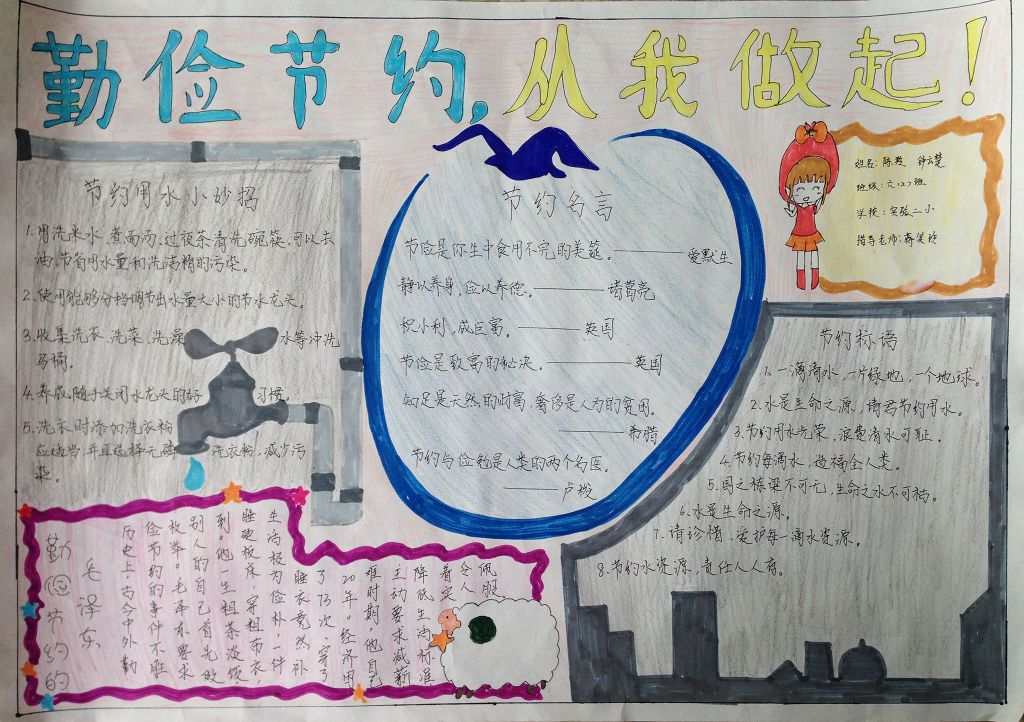 勤俭节约，从我做起！
节约用水小妙招
1.用洗米水、煮面汤、过夜茶清洗碗筷，可以去
油，节省用水量和洗洁精的污染。
2.使用能够分档调节出水量大小的节水龙头。
3.收集洗衣、洗菜、洗澡水等冲洗
马桶。
4.养成随手关闭水龙头的好习惯。
5.洗衣时添加洗衣粉
应适当，并且选择无磷洗衣粉，减少污
染。
节约名言
节俭是你生中食用不完的美筵。——爱默生
静以养身，俭以养德。——诸葛亮
积小利，成巨富。——英国
节俭是致富的秘决。——英国
知足是天然的财富，奢侈是人为的贫困。
——希腊
节约与俭勉是人类的两个名医。
——卢梭
姓名：陈 钟云楚
班级：六（2）班
学校：实验二小
指导老师：蒋笑玲
节约标语
1.一滴滴水，一片绿地，一个地球。
2.水是生命之源，请君节约用水。
3.节约用水光荣，浪费清水可耻。
4.节约每滴水，造福全人类。
5.国之栋梁不可无，生命之水不可枯。
6.水是生命之源。
7.请珍惜、爱护每一滴水资源。
8.节约水资源，责任人人有。
勤俭节约的
毛泽东
历史上，古今中外勤
俭节约的事件不胜
枚举。毛泽东要求
别人的自己首先做
到。他一生粗茶淡饭，
睡硬板床，穿粗布衣，
生活极为俭朴，一件
睡衣竟然补
了73次，穿了
20年。经济困
难时期，他自己
主动要求减薪、
降低生活标准
着实
令人
佩服